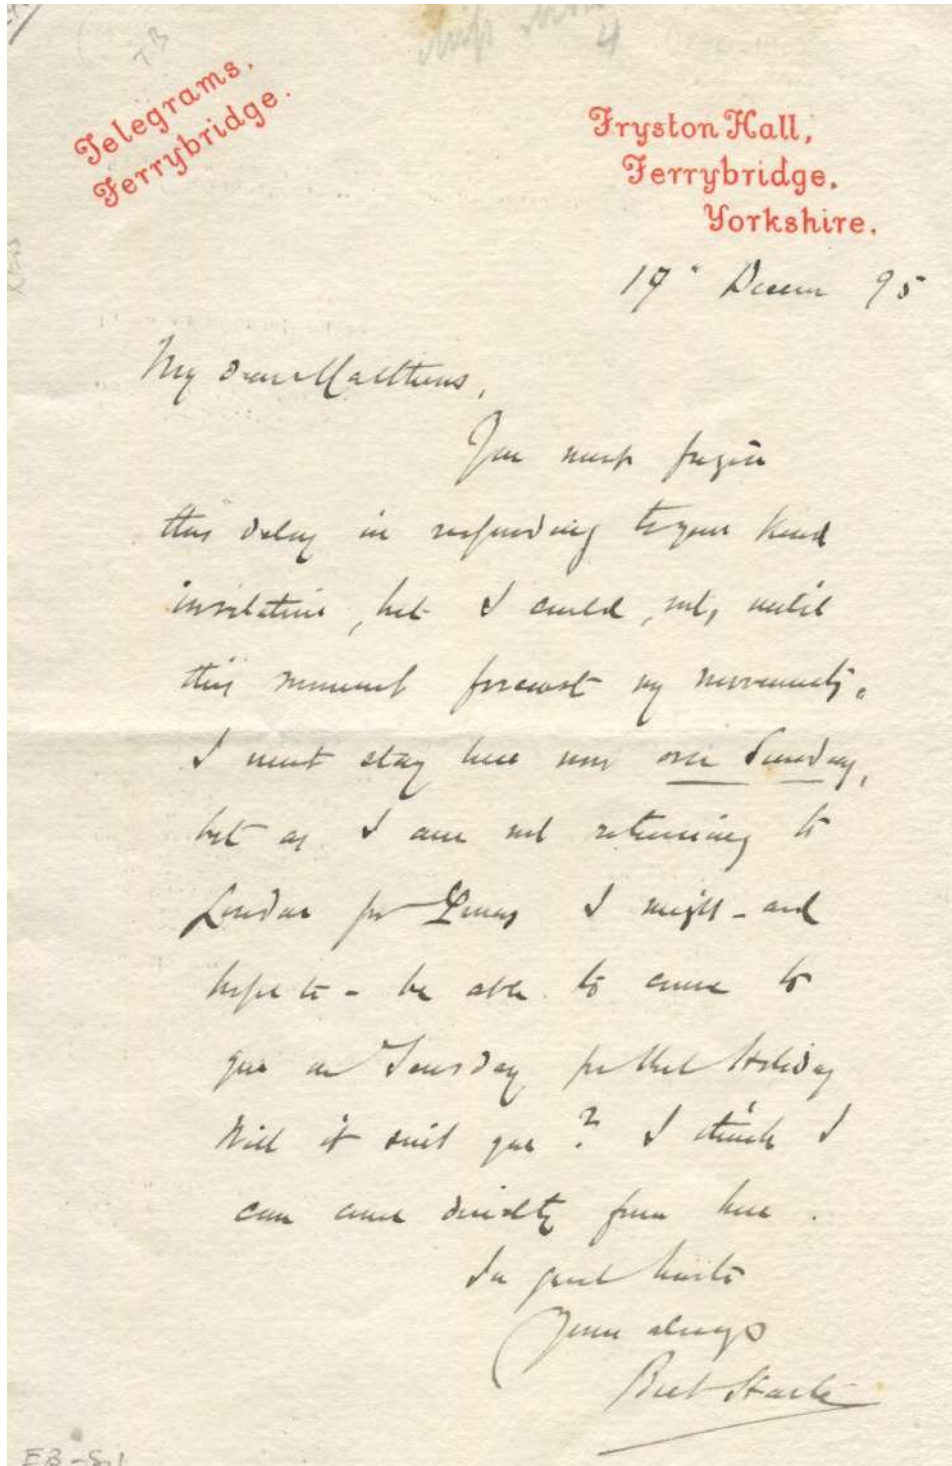 Telegrams.
Ferrybridge.
Fryston Hall,
Ferrybridge.
Yorkshire.
19" Decem 95
My dear Matthews,
You must forgive
this delay in responding to your kind
invitation, but I could not, until
this moment forecast my movements.
I must stay here now over Sunday,
but as I am not returning to
London for Xmas I might - and
hope to - be able to come to
you on Tuesday for the Holiday
Will it suit you? I think I
can come directly from here.
In great haste
Yours always
Bret Harte